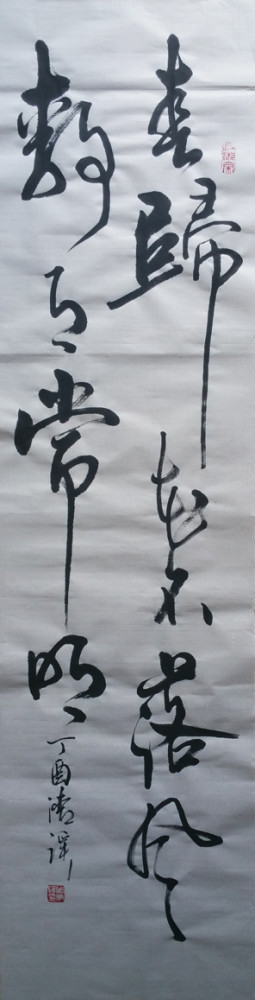 春歸花不落風
靜月常明
丁酉